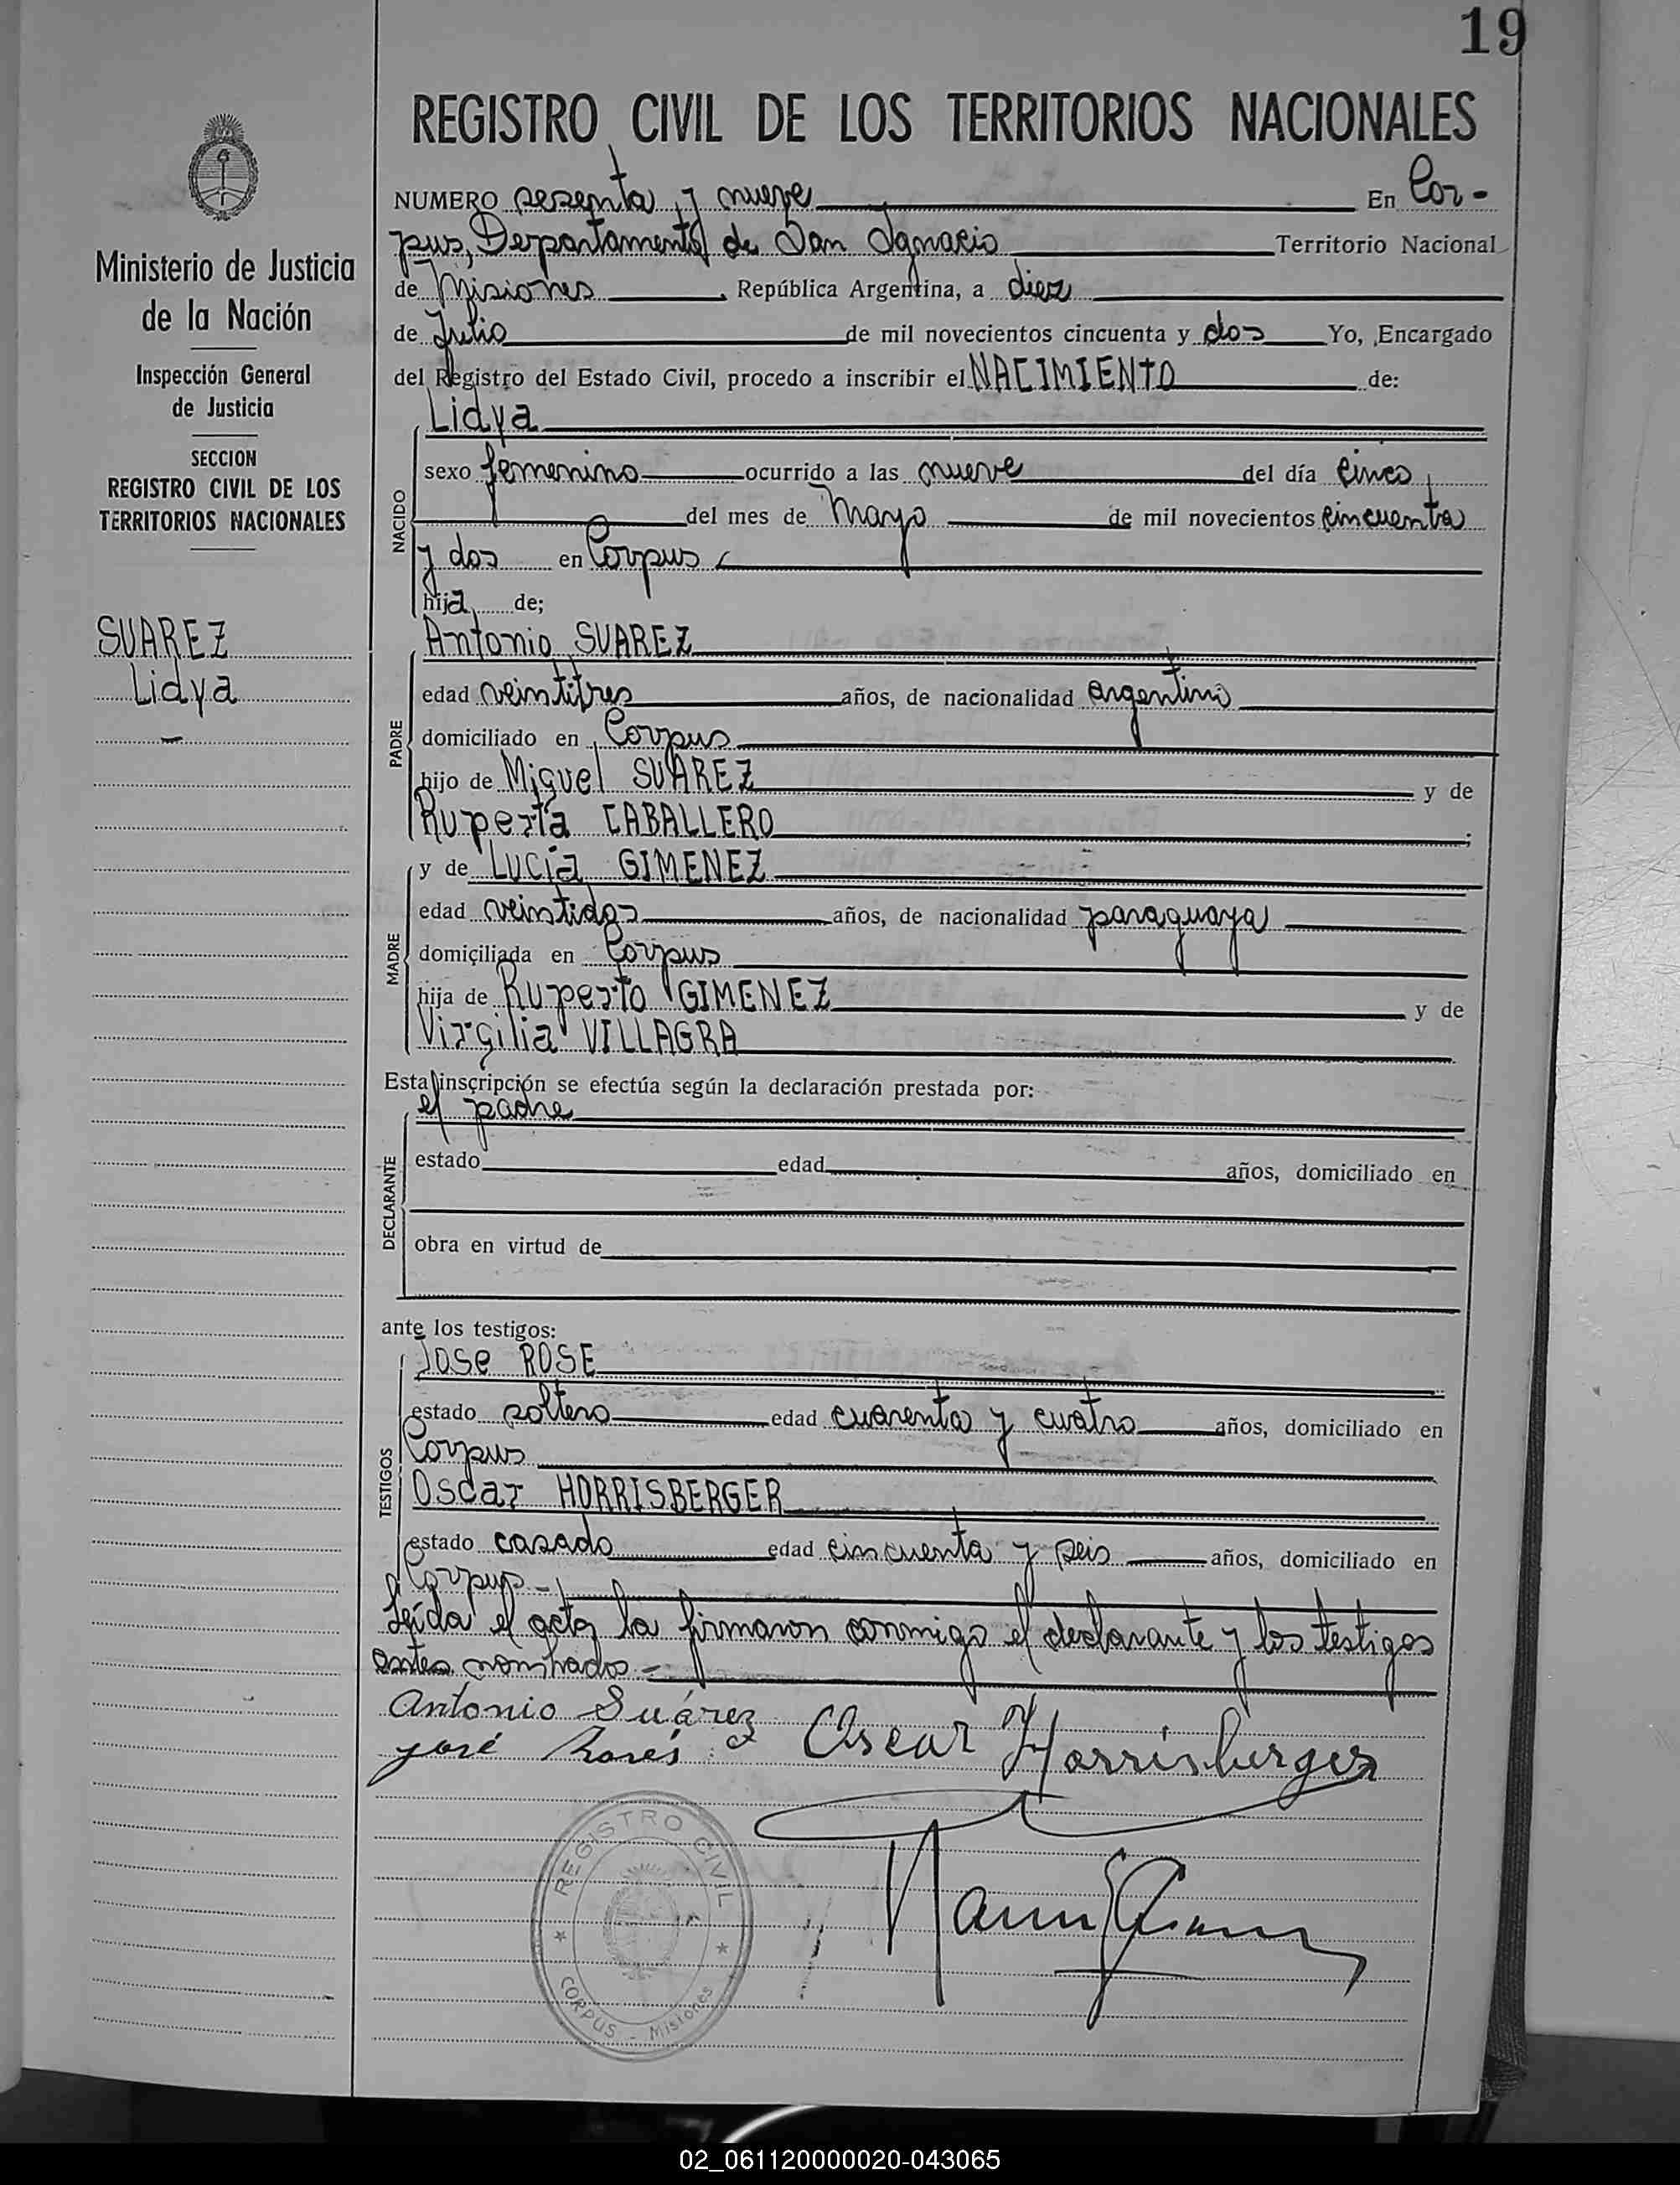 19
REGISTRO CIVIL DE LOS TERRITORIOS NACIONALES
Ministerio de Justicia
de la Nación
Inspección General
de Justicia
SECCION
REGISTRO CIVIL DE LOS
TERRITORIOS NACIONALES
SUAREZ
Lidya
NUMERO sesenta y nueve En Cor-
pus, Departamento de San Ignacio Territorio Nacional
de Misiones, República Argentina, a diez
de Julio de mil novecientos cincuenta y dos Yo, Encargado
del Registro del Estado Civil, procedo a inscribir el NACIMIENTO de:
Lidya
NACIDO
sexo femenino ocurrido a las nueve del día cinco
del mes de Mayo de mil novecientos cincuenta
y dos en Corpus
hija de;
PADRE
Antonio SUAREZ
edad veintitres años, de nacionalidad argentino
domiciliado en Corpus
hijo de Miguel SUAREZ y de
Ruperta CABALLERO;
MADRE
y de Lucía GIMENEZ
edad veintidos años, de nacionalidad paraguaya
domiciliada en Corpus
hija de Ruperto GIMENEZ y de
Virgilia VILLAGRA
Esta inscripción se efectúa según la declaración prestada por:
DECLARANTE
el padre
estado edad años, domiciliado en
obra en virtud de
ante los testigos:
TESTIGOS
Jose ROSE
estado soltero edad cuarenta y cuatro años, domiciliado en
Corpus
Oscar HORRISBERGER
estado casado edad cincuenta y seis años, domiciliado en
Corpus-
Leída el acta, la firmaron conmigo el declarante y los testigos
antes nombrados-
Antonio Suárez Oscar Horrisberger
José
REGISTRO CIVIL
CORPUS - Misiones
02_061120000020-043065